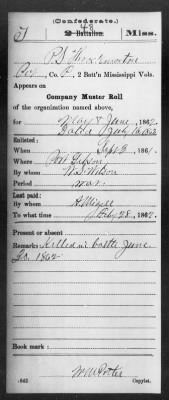 (Confederate.)
T 48
2 Battalion. Miss.
P S Throckmorton
Co. F, 2 Batt'n Mississippi Vols.
Appears on
Company Muster Roll
of the organization named above,
for May & June, 1862.
dated July 12, 1862
Enlisted:
When Sept 3, 1861.
Where Port Gibson
By whom W. S. Wilson
Period war
Last paid:
By whom
To what time Feby 28, 1862.
Present or absent
Remarks: Killed in battle June
30 1862
Book mark:
(642) Copyist.